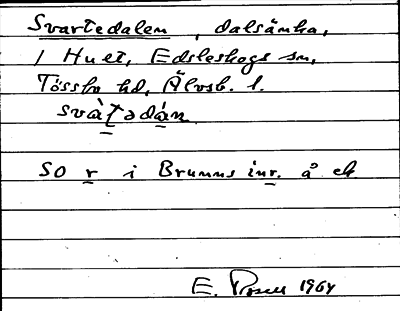 Svartedalen, dalsänka,
i Hult, Edsleskogs sn,
Tössbo hd, Älvsb. l.
svàʈədán
SO r i Brunns inr. å ek
E. 1964